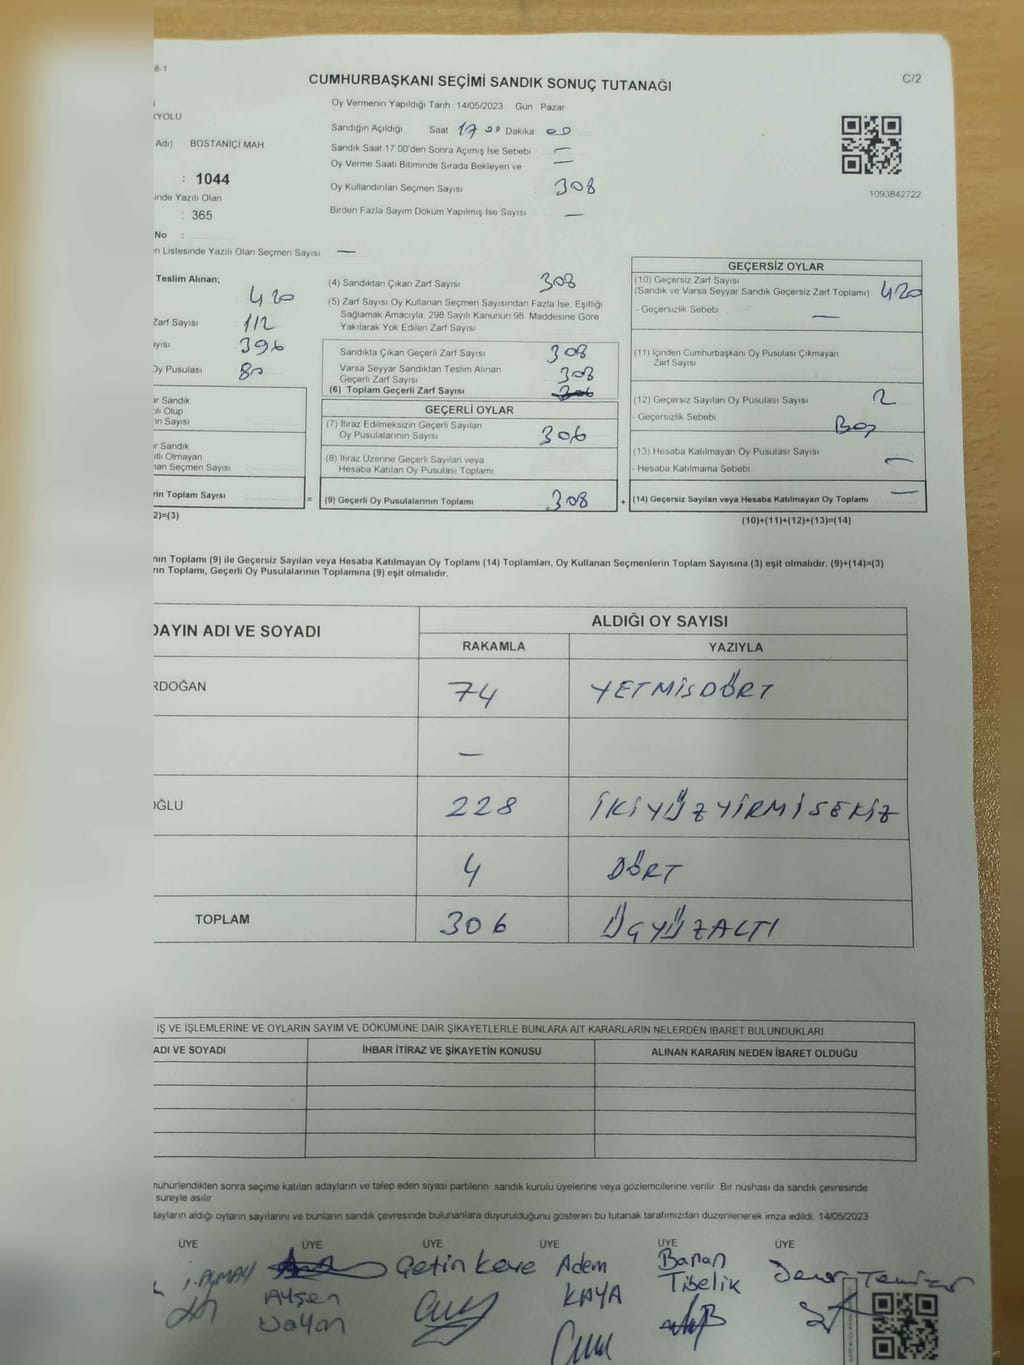 8-1
CUMHURBAŞKANI SEÇİMİ SANDIK SONUÇ TUTANAĞI
C/2
Oy Vermenin Yapıldığı Tarih 14/05/2023 Gün Pazar
KYOLU
Sandığın Açıldığı Saat 17 00 Dakika 00
Adı) : BOSTANİÇİ MAH
Sandık Saat 17 00'den Sonra Açımış İse Sebebi —
Oy Verme Saati Bitiminde Sırada Bekleyen ve —
: 1044
Oy Kullandırılan Seçmen Sayısı 308
1093842722
inde Yazılı Olan
: 365
Birden Fazla Sayım Döküm Yapılmış İse Sayısı —
No :
n Listesinde Yazılı Olan Seçmen Sayısı —
Teslim Alınan;
420
Zarf Sayısı 112
yısı 396
Oy Pusulası 80
ar Sandık
olı Olup
ın Sayısı
ır Sandık
tlı Olmayan
nan Seçmen Sayısı
rin Toplam Sayısı =
2)=(3)
(4) Sandıktan Çıkan Zarf Sayısı 308
(5) Zarf Sayısı Oy Kullanan Seçmen Sayısından Fazla İse, Eşitliği
Sağlamak Amacıyla, 298 Sayılı Kanunun 98. Maddesine Göre
Yakılarak Yok Edilen Zarf Sayısı
Sandıkta Çıkan Geçerli Zarf Sayısı 308
Varsa Seyyar Sandıktan Teslim Alınan
Geçerli Zarf Sayısı 308
(6) Toplam Geçerli Zarf Sayısı
GEÇERLİ OYLAR
(7) İtiraz Edilmeksizin Geçerli Sayılan
Oy Pusulalarının Sayısı 306
(8) İtiraz Üzerine Geçerli Sayılan veya
Hesaba Katılan Oy Pusulası Toplamı
(9) Geçerli Oy Pusulalarının Toplamı 308 +
GEÇERSİZ OYLAR
(10) Geçersiz Zarf Sayısı
(Sandık ve Varsa Seyyar Sandık Geçersiz Zarf Toplamı) 420
- Geçersizlik Sebebi —
(11) İçinden Cumhurbaşkanı Oy Pusulası Çıkmayan
Zarf Sayısı
(12) Geçersiz Sayılan Oy Pusulası Sayısı 2
- Geçersizlik Sebebi Boş
(13) Hesaba Katılmayan Oy Pusulası Sayısı —
- Hesaba Katılmama Sebebi
(14) Geçersiz Sayılan veya Hesaba Katılmayan Oy Toplamı —
(10)+(11)+(12)+(13)=(14)
nın Toplamı (9) ile Geçersiz Sayılan veya Hesaba Katılmayan Oy Toplamı (14) Toplamları, Oy Kullanan Seçmenlerin Toplam Sayısına (3) eşit olmalıdır. (9)+(14)=(3)
rın Toplamı, Geçerli Oy Pusulalarının Toplamına (9) eşit olmalıdır.
DAYIN ADI VE SOYADI
ALDIĞI OY SAYISI
RAKAMLA YAZIYLA
RDOĞAN 74 YETMİSDÖRT
—
OĞLU 228 İKİYÜZYİRMİSEKİZ
4 DÖRT
TOPLAM 306 ÜÇYÜZALTI
İŞ VE İŞLEMLERİNE VE OYLARIN SAYIM VE DÖKÜMÜNE DAİR ŞİKAYETLERLE BUNLARA AİT KARARLARIN NELERDEN İBARET BULUNDUKLARI
ADI VE SOYADI İHBAR İTİRAZ VE ŞİKAYETİN KONUSU ALINAN KARARIN NEDEN İBARET OLDUĞU
mühürlendikten sonra seçime katılan adayların ve talep eden siyasi partilerin sandık kurulu üyelerine veya gözlemcilerine verilir Bir nushası da sandık çevresinde
süreyle asılır
dayların aldığı oyların sayılarını ve bunların sandık çevresinde bulunanlara duyurulduğunu gösteren bu tutanak tarafımızdan düzenlenerek imza edildi. 14/05/2023
ÜYE ÜYE ÜYE ÜYE ÜYE ÜYE
Çetin Adem Baran
KAYA Tibelik
Ayşen